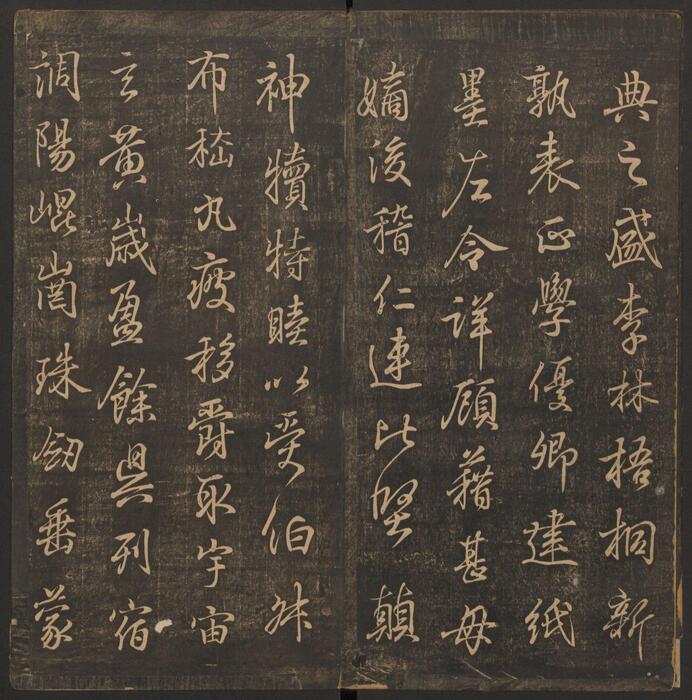 典之盛李林梧桐新
孰表正學優卿建紙
墨左令詳顧藉甚毋
嫡後稽仁連比堅顛
神犢特睦以受伯舛
布嵇丸疲移爵取宇宙
玄黃歲盈餘具刑宿
調陽崐崗珠劒垂蒙